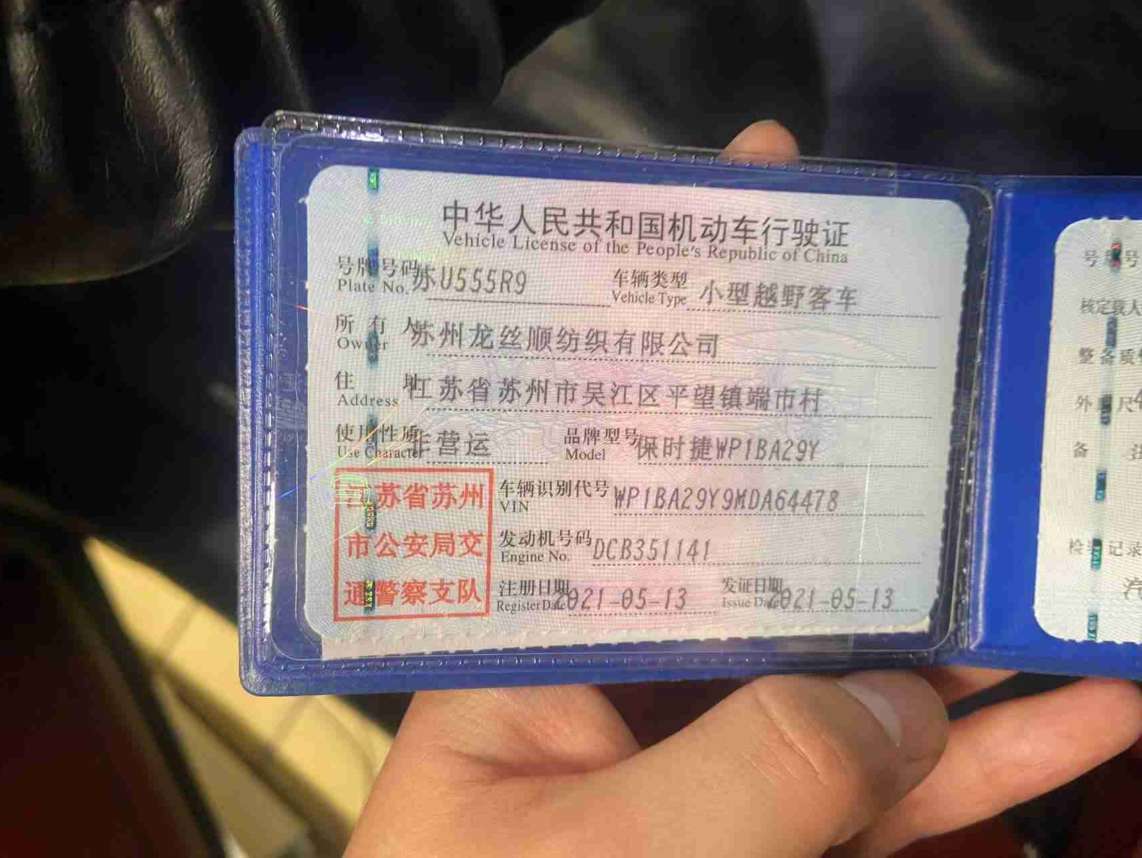 中华人民共和国机动车行驶证
Vehicle License of the People's Republic of China
号牌号码 苏U555R9 车辆类型 小型越野客车
Plate No. Vehicle Type
所有人 苏州龙丝顺纺织有限公司
Owner
住址 江苏省苏州市吴江区平望镇端市村
Address
使用性质 非营运 品牌型号 保时捷WP1BA29Y
Use Character Model
江苏省苏州
市公安局交
通警察支队
车辆识别代号 WP1BA29Y9MDA64478
VIN
发动机号码 DCB351141
Engine No.
注册日期 2021-05-13 发证日期 2021-05-13
Register Date Issue Date
号牌号
核定载人
整备质
外 尺
备 注
检 记录